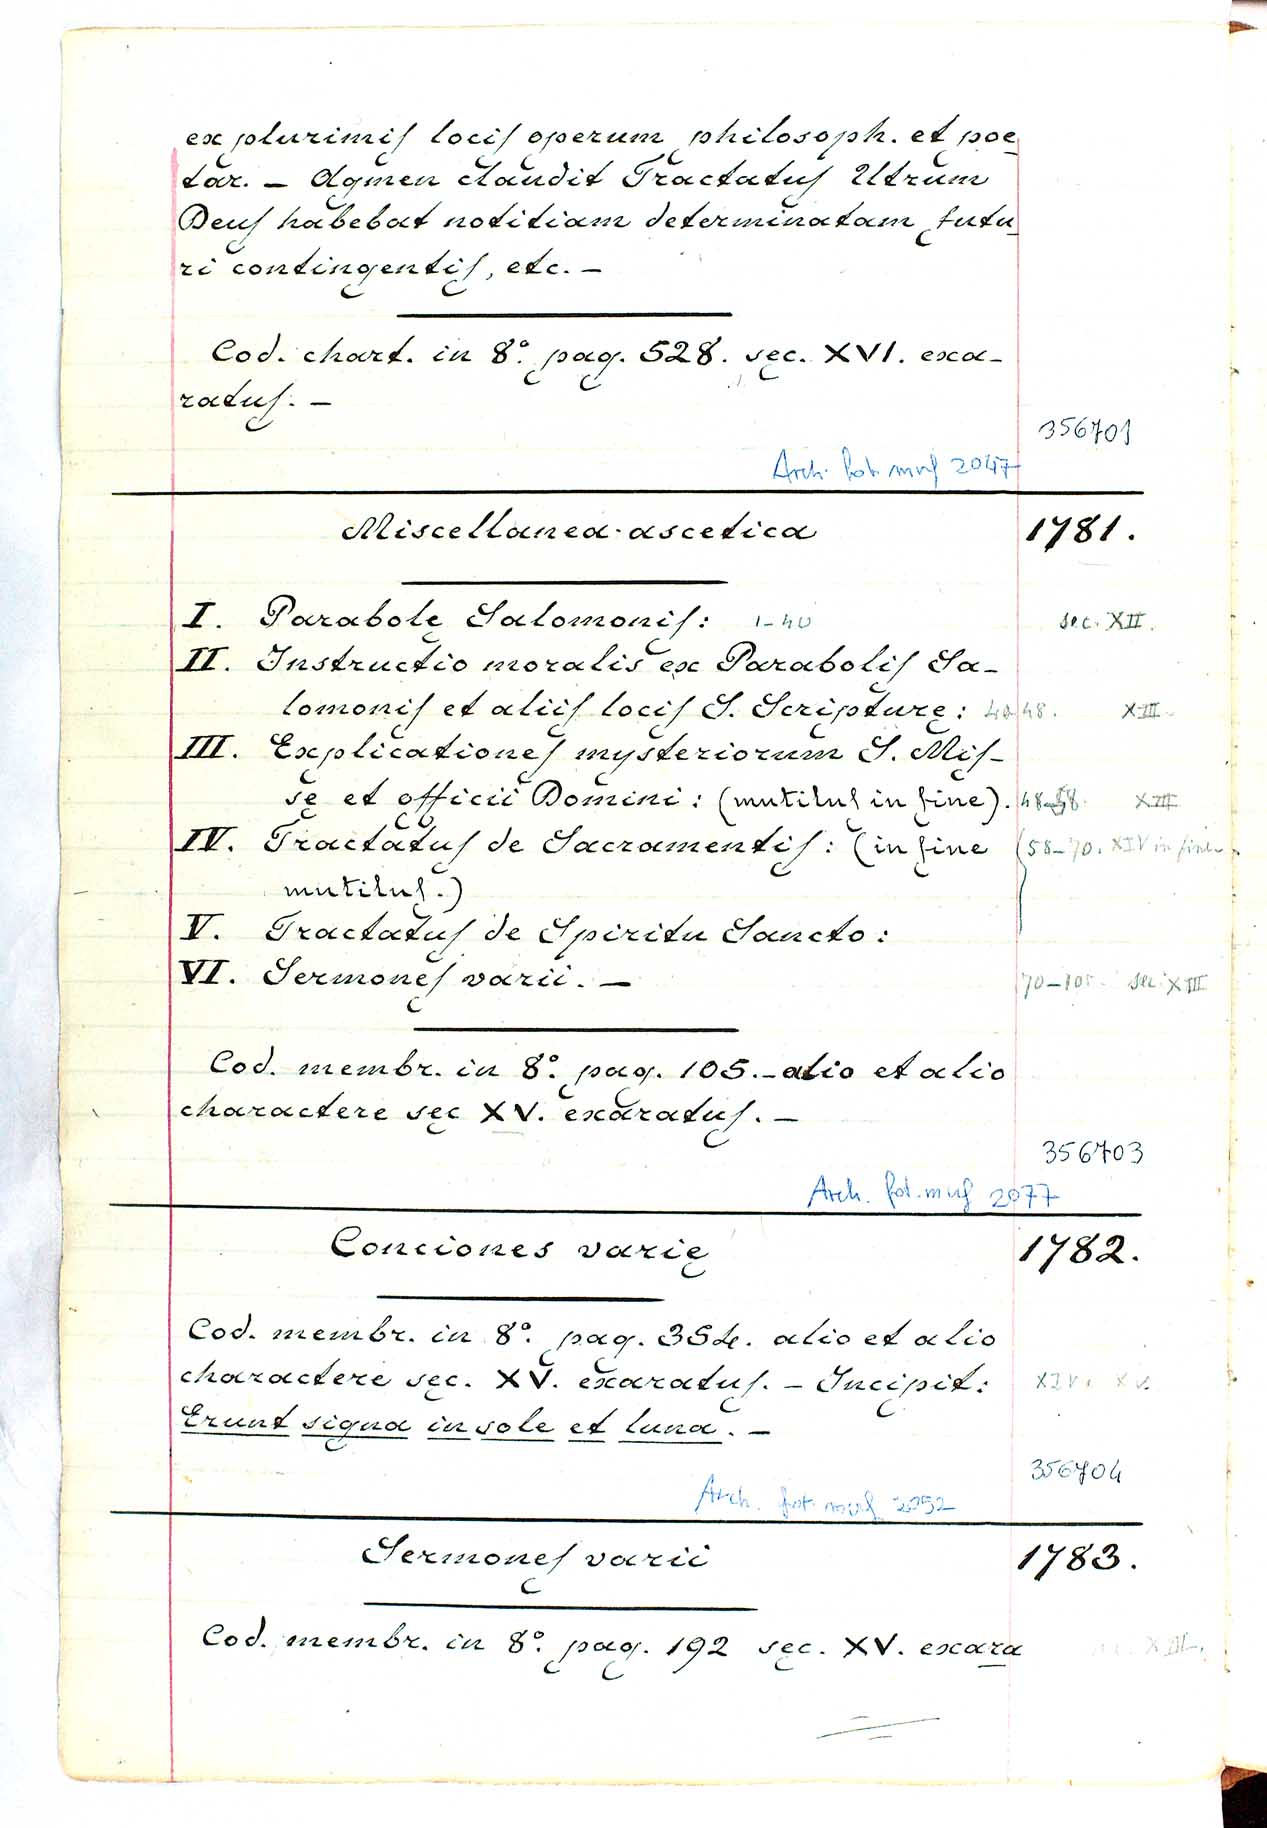 ex plurimis locis operum philosoph. et poe-
tar. – Agmen claudit Tractatus Utrum
Deus habebat notitiam determinatam futu-
ri contingentis, etc. –
Cod. chart. in 8°. pag. 528. sęc. XVI. exa-
ratus. –
356701
Arch. fot. mss 2047
Miscellanea ascetica 1781.
I. Parabolę Salomonis: 1-40 sec. XII.
II. Instructio moralis ex Parabolis Sa-
lomonis et aliis locis S. Scripturę: 40 48. XIII.
III. Explicationes mysteriorum S. Mis-
sę et officii Domini: (mutilus in fine). 48-58. XIII
IV. Tractatus de Sacramentis: (in fine 58-70. XIV in fine
mutilus.)
V. Tractatus de Spiritu Sancto:
VI. Sermones varii. – 70-105. sec. XIII
Cod. membr. in 8°. pag. 105. – alio et alio
charactere sęc XV. exaratus. –
356703
Arch. fot. mss 2077
Conciones varię 1782.
Cod. membr. in 8°. pag. 354. alio et alio
charactere sęc. XV. exaratus. – Incipit: XIV. XV.
Erunt signa in sole et luna. –
356704
Arch. fot. mss 2052
Sermones varii 1783.
Cod. membr. in 8°. pag. 192 sęc. XV. exara